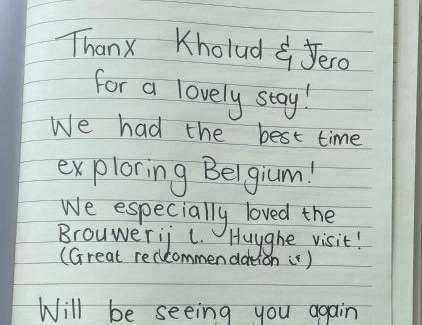 Thanx Kholud & Jero
for a lovely stay!
We had the best time
exploring Belgium!
We especially loved the
Brouwerij L. Huyghe visit!
(Great reckommendation is)
Will be seeing you again